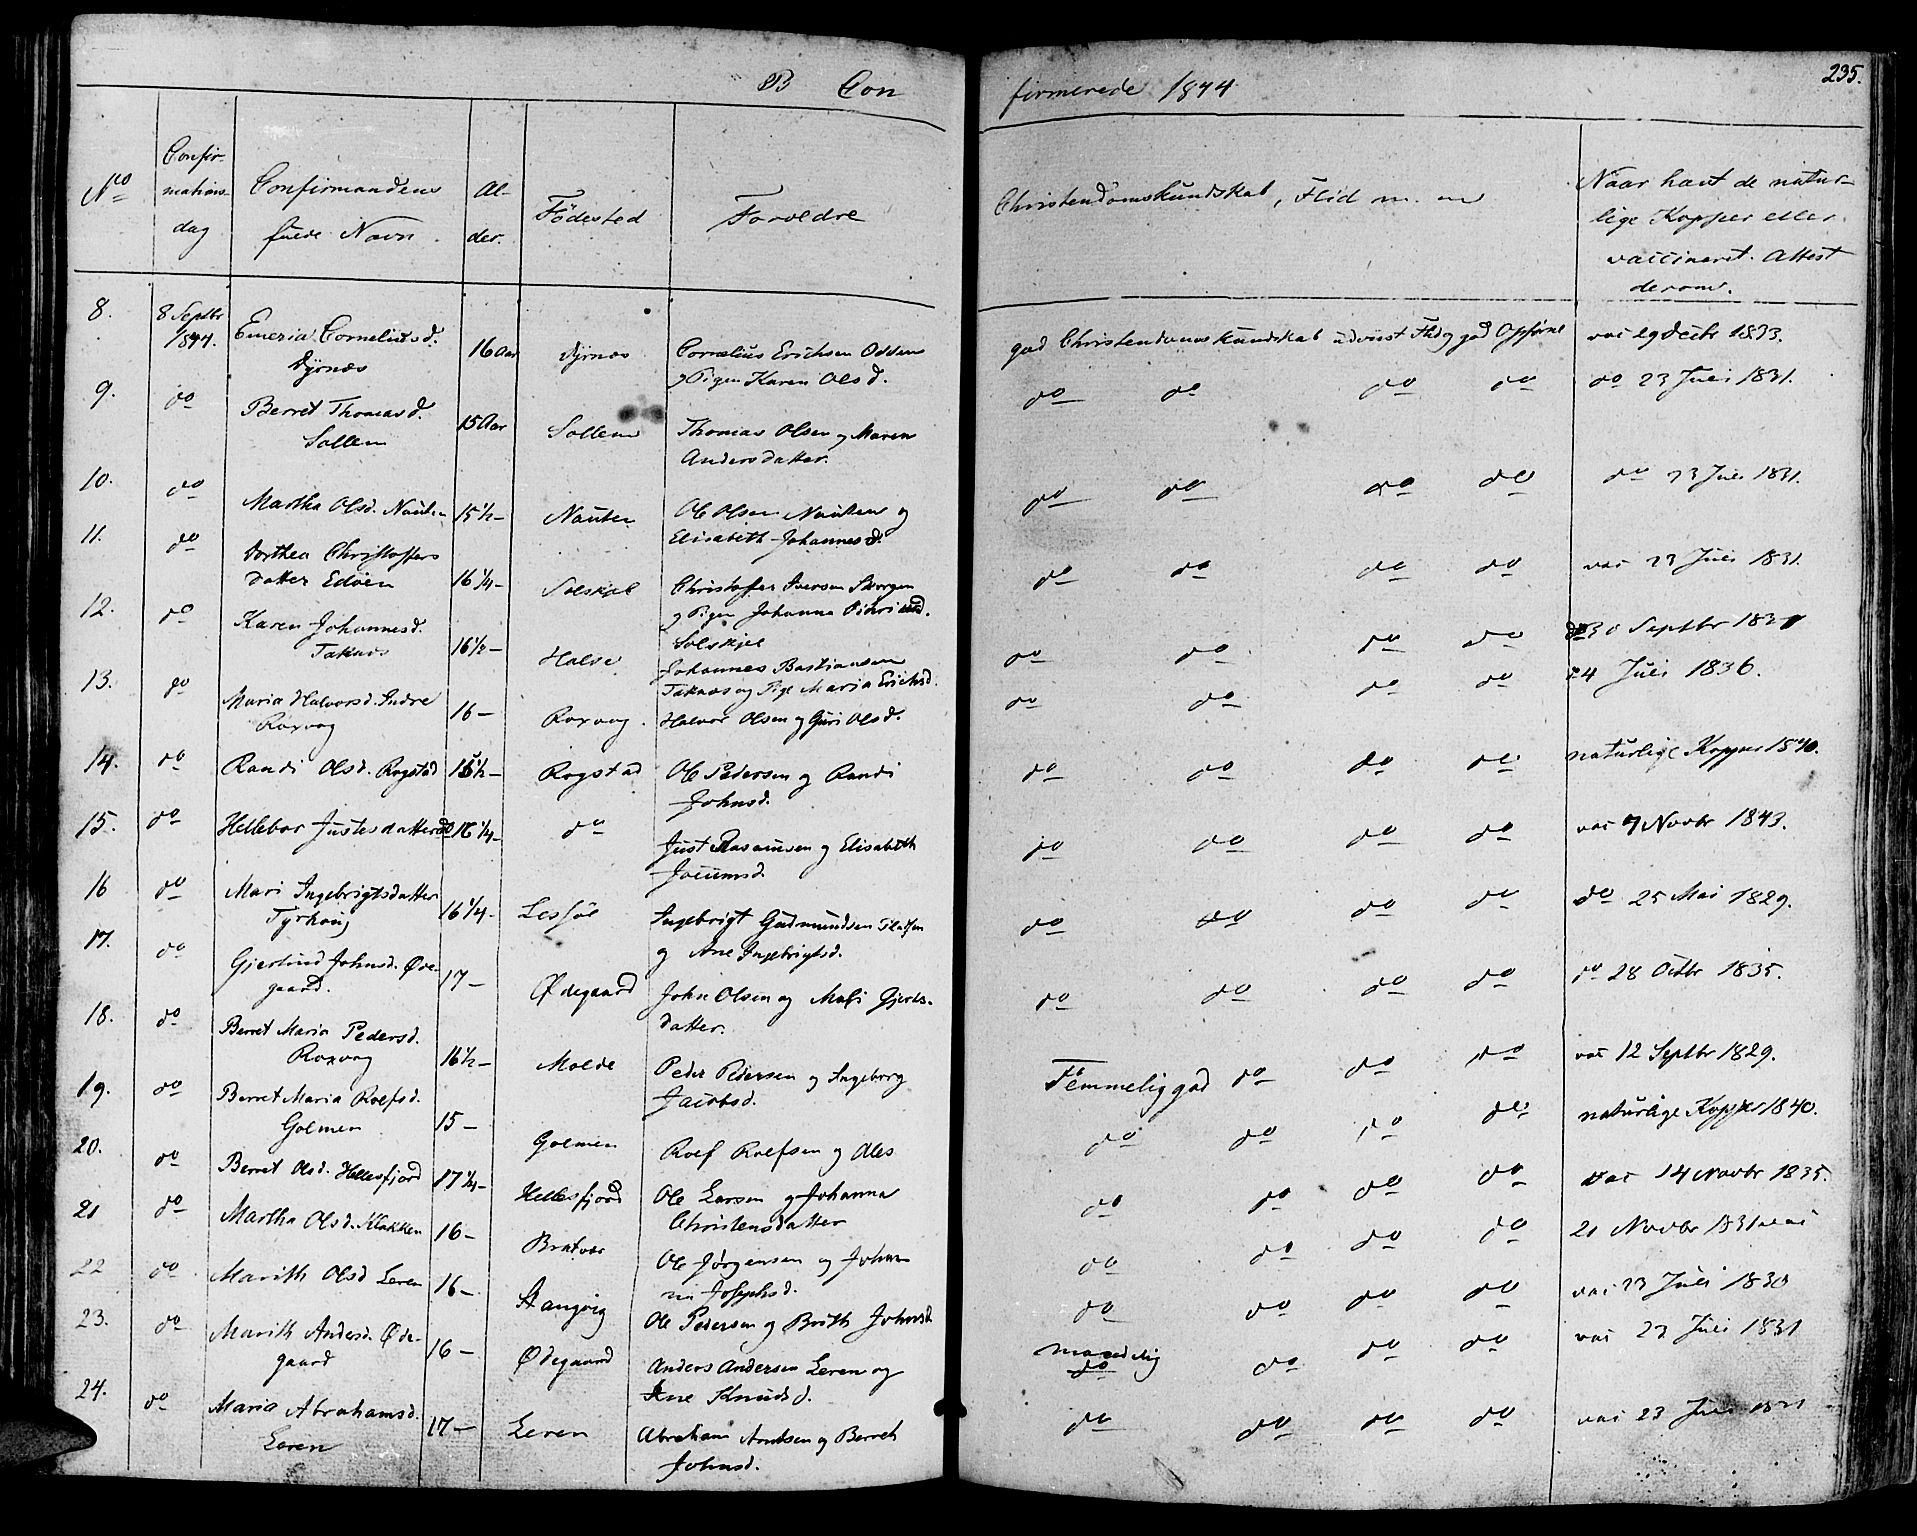 235.
B Con
firmerede 1844
No
Confir-
mations-
dag
Confirmandens
fulde Navn.
Al-
der.
Födested
Forældre
Christendomskundskab, Flid m. m
Naar havt de natur-
lige Kopper eller
vaccineret. Attest
derom.
8. 8 Septbr 1844. Emeria Corneliusd. 16 Aar Dyrnæs Cornelius Erichsen Odden god Christendomskundskab udviist Flid og god Opførsel vac 29 Decbr 1833.
Dyrnæs og Pigen Karen Olsd.
9. do Berret Thomasd. 15 Aar Sollem Thomas Olsen og Maren do do do do do 23 Juli 1831.
Sollem Andersdatter.
10. do Martha Olsd. Nauten 15½- Nauten Ole Olsen Nauten og do do do do do 23 Juli 1831.
Elisabeth Johannesd.
11. do Dorthea Christoffers 16¼- Solskjel Christoffer Iversen do do do do vac 23 Juli 1831.
datter Edöen og Pigen Johanna
Solskjel
12. do Karen Johannesd. 16½- Halse Johannes Bastiansen do do do do 30 Septbr 1831
Taknæs Taknæs og Pige Maria Erichsd.
13. do Maria Halvorsd. Indre 16- Roxvog. Halvor Olsen og Guri Olsd. do do do do 24 Juli 1836.
Roxvog
14. do Randi Olsd. Rogstad 15½- Rogstad Ole Pedersen og Randi do do do do naturlige Kopper 1840.
Johnsd.
15. do Hellebor Justesdatter do 16¼- do Just Rasmusen og Elisabeth do do do do vac 7 Novbr 1843.
Jocumsd.
16 do Mari Ingebrigtsdatter 16¼- Ingebrigt Gudmundsen do do do do do 25 Mai 1829.
Tyrhoug og Ane Ingebrigtsd.
17. do Gjertrud Johnsd. Øde- 17- Ødegaard John Olsen og Mali Gjerts- do do do do do 28 Octbr 1835.
gaard. datter.
18. do Berret Maria Pedersd. 16½- Molde Peder Pedersen og Ingeborg Temmelig god do do do vac 12 Septbr 1829.
Roxvog Jacobsd.
19. do Berret Maria Roefsd. 15- Golmen Roef Roefsen og do do do do naturlige Kopper 1840.
Golmen
20. do Berret Olsd. Hellesfjord 17¼- Hellesfjord Ole Larsen og Johanna do do do do vac 14 Novbr 1835.
Christensdatter
21 do Martha Olsd. Klakken 16- Bratvær Ole Jørgensen og Johan- do do do do 21 Novbr 1831 vac
na Josephsd.
22 do Marith Olsd Leren 16- Stangvig Ole Pedersen og Brith Johnsd. do do do do vac 23 Juli 1830
23. do Marith Andersd. Øde- 16- Ødegaard Anders Andersen Leren og maadelig do do do do vac 23 Juli 1831
gaard Ane Knudsd.
24. do Maria Abrahamsd. 17- Leren Abraham Arntsen og Berreth do do do do vac 23 Juli 1831
Leren Johnsd.